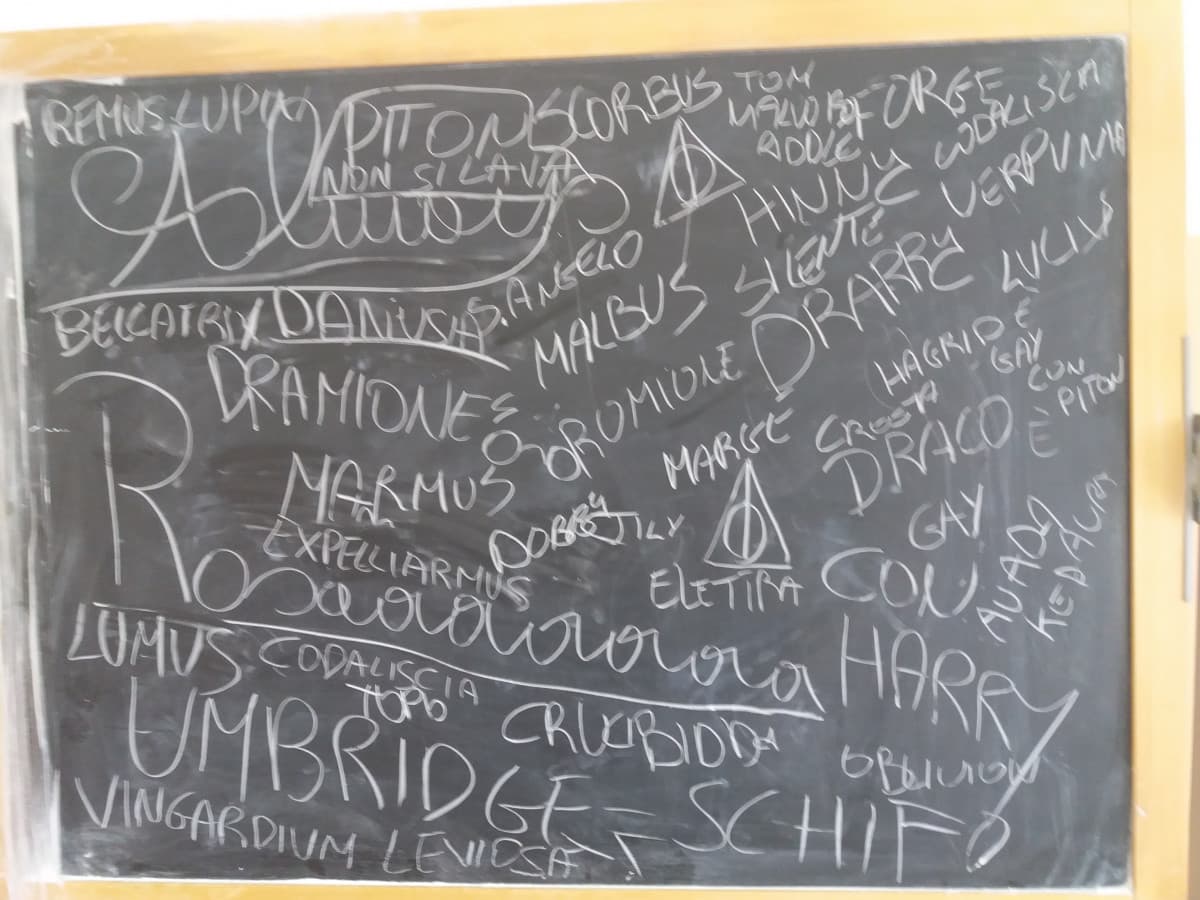 REMUS LUPIN
PITON
NON SI LAVA
SCORBUS
TOM
RIDDLE
FORGE
CODALISCIA
Always
HINNY
VERPUNIA
BELLATRIX
DANIUSA
S. ANGELO
MALBUS
SILENTE
DRARRY
LUCIUS
DRAMIONE
ROMIONE
HAGRID È
GAY
CON
PITON
MARGE
CRESTA
DRACO È
GAY
CON
HARRY
MARMUS
EXPELLIARMUS
DOBBY
JILY
ELETTRA
AVADA
KEDAVRA
Rosaaaaaaaa
LUMUS
CODALISCIA
TOPO
CRUCIBIDDA
OBLIVION
UMBRIDGE = SCHIFO
VINGARDIUM LEVIOSA